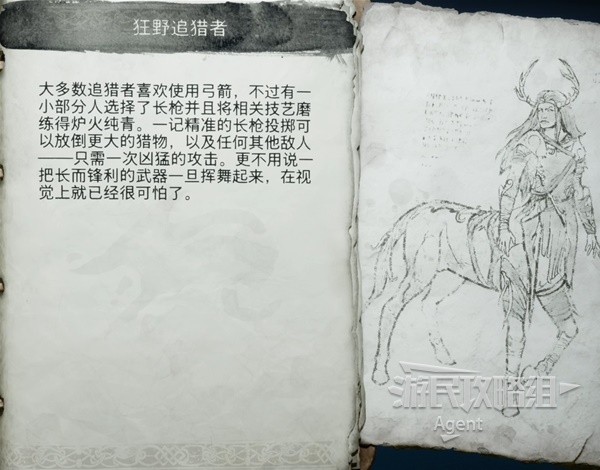 狂野追猎者
大多数追猎者喜欢使用弓箭，不过有一
小部分人选择了长枪并且将相关技艺磨
练得炉火纯青。一记精准的长枪投掷可
以放倒更大的猎物，以及任何其他敌人
——只需一次凶猛的攻击。更不用说一
把长而锋利的武器一旦挥舞起来，在视
觉上就已经很可怕了。
游民攻略组
Agent